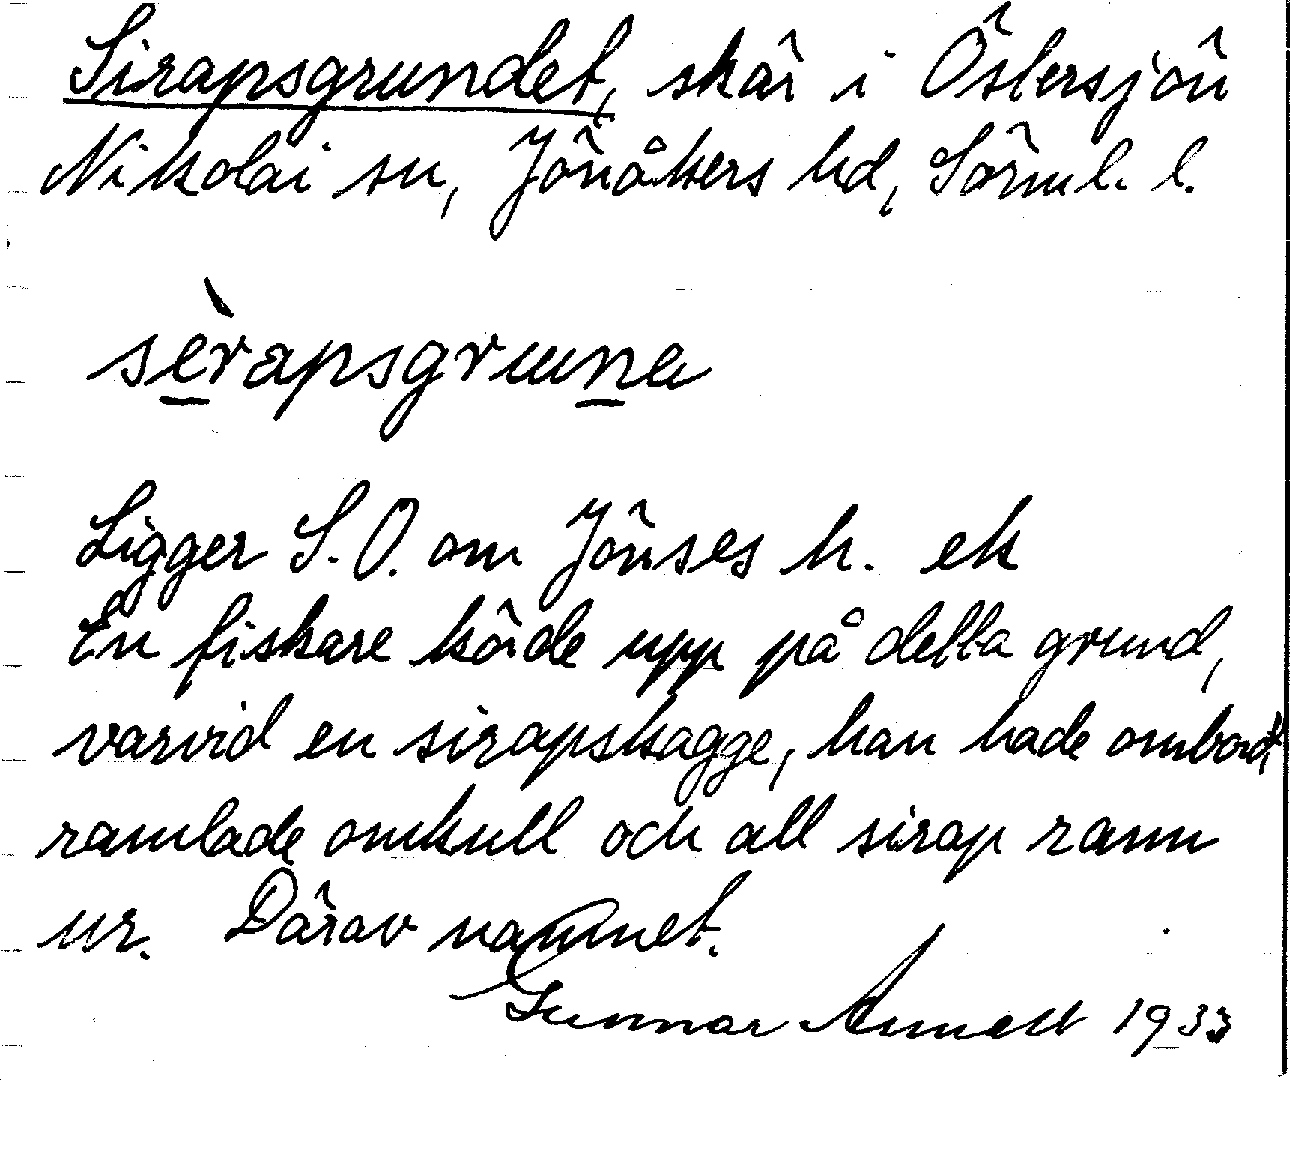 Sirapsgrundet, skär i Östersjön
Nikolai sn, Jönåkers hd, Sörml. l.
sèrapsgrunna
Ligger S.O. om Jönses h. ek
En fiskare körde upp på detta grund,
varvid en sirapskagge, han hade ombord,
ramlade omkull och all sirap rann
ur. Därav namnet.
Gunnar Annell 1933